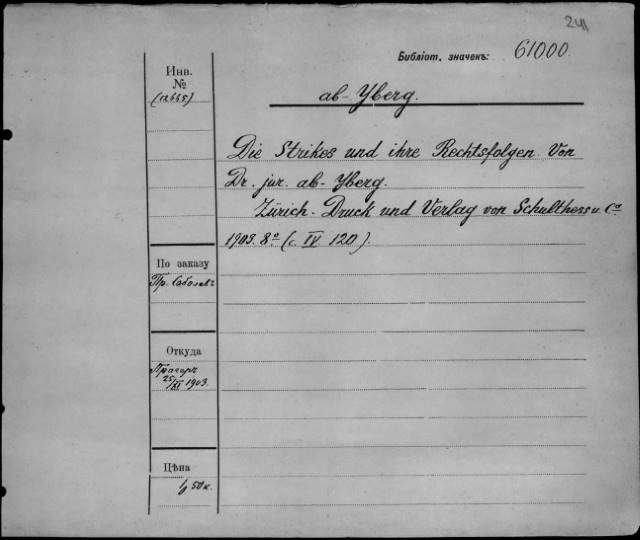 241
Библіот. значекъ: 61000.
Инв.
№
(12665)
ab-Yberg.
Die Strikes und ihre Rechtsfolgen. Von
Dr. jur. ab-Yberg.
Zürich. Druck und Verlag von Schulthess u. Co
1903. 8° (c. IV. 120).
По заказу
Пр. Соболевъ
Откуда
Прагеръ
25/XI 1903.
Цѣна
50 к.